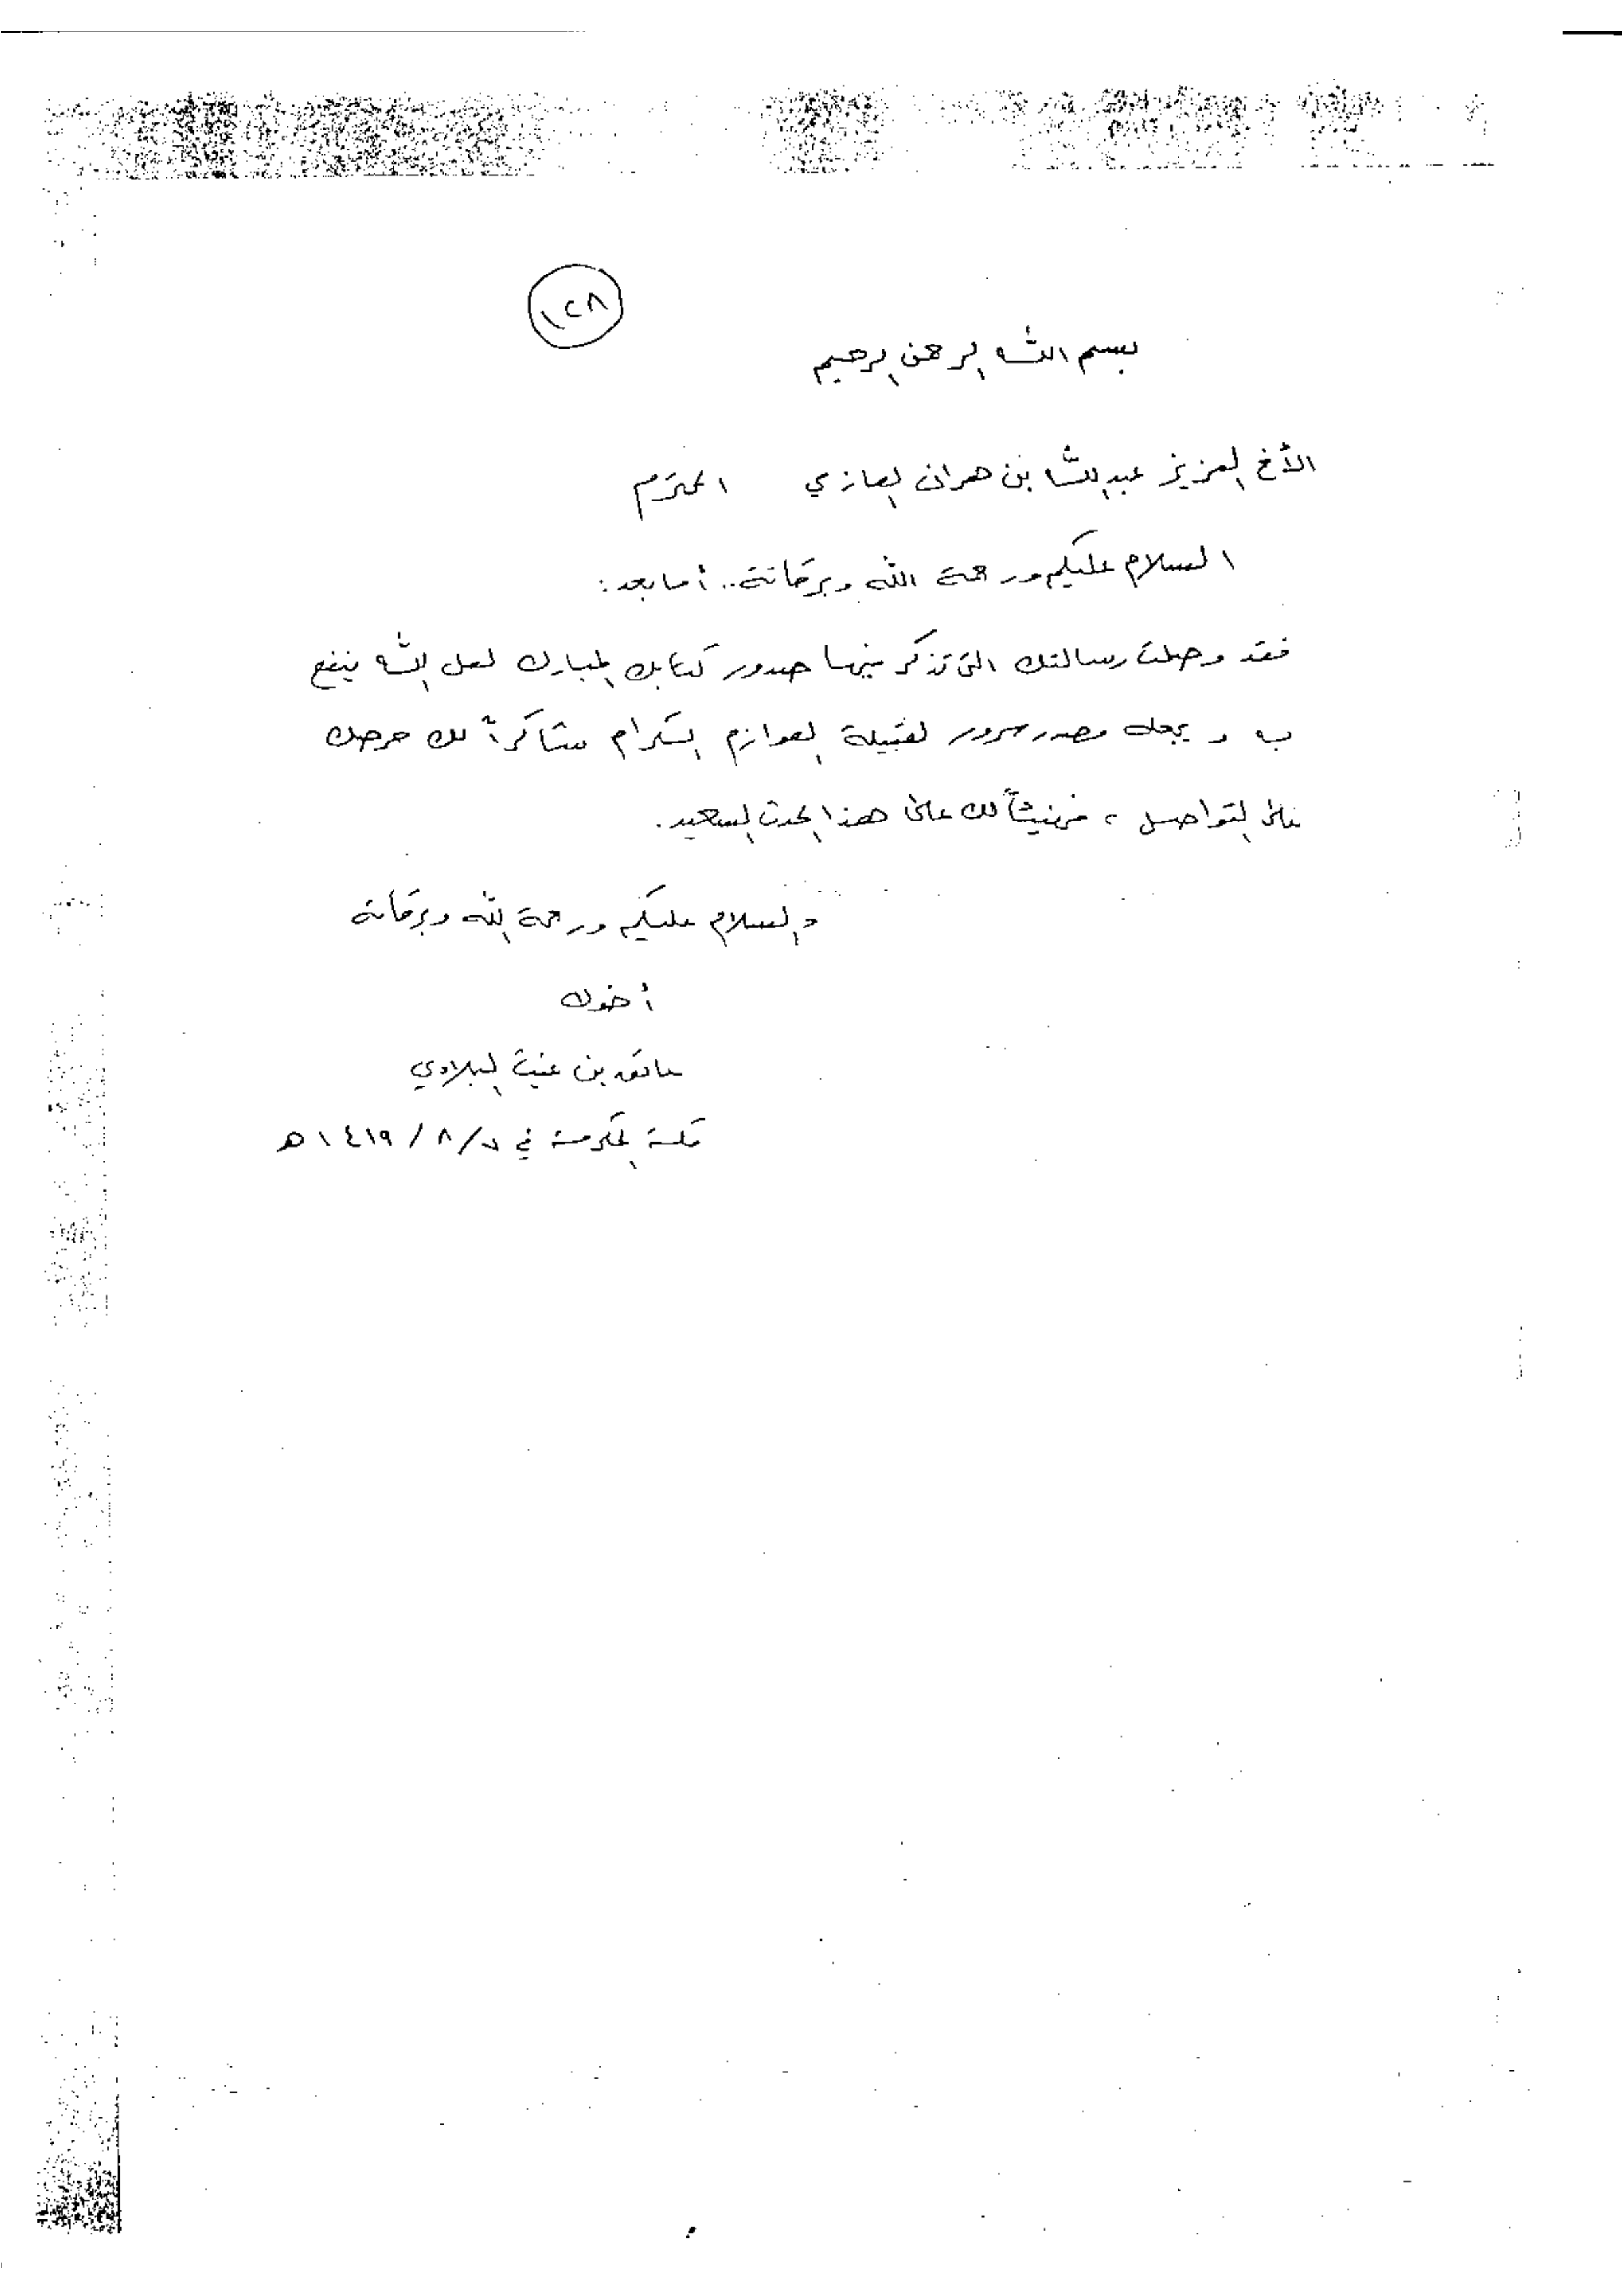 ١٢٨
بسم الله الرحمن الرحيم
الأخ العزيز عبدالله بن همران العازمي المحترم
السلام عليكم ورحمة الله وبركاته.. أما بعد:
فقد وصلت رسالتك التي تذكر فيها صدور كتابك المبارك لعل الله ينفع
به ويجعله مصدر سرور لقبيلة العوازم الكرام شاكراً لك حرصك
على التواصل، فهنيئاً لك على هذا الحدث السعيد.
والسلام عليكم ورحمة الله وبركاته
أخوك
عاتق بن غيث البلادي
مكة المكرمة في ٧/٨/١٤١٩هـ